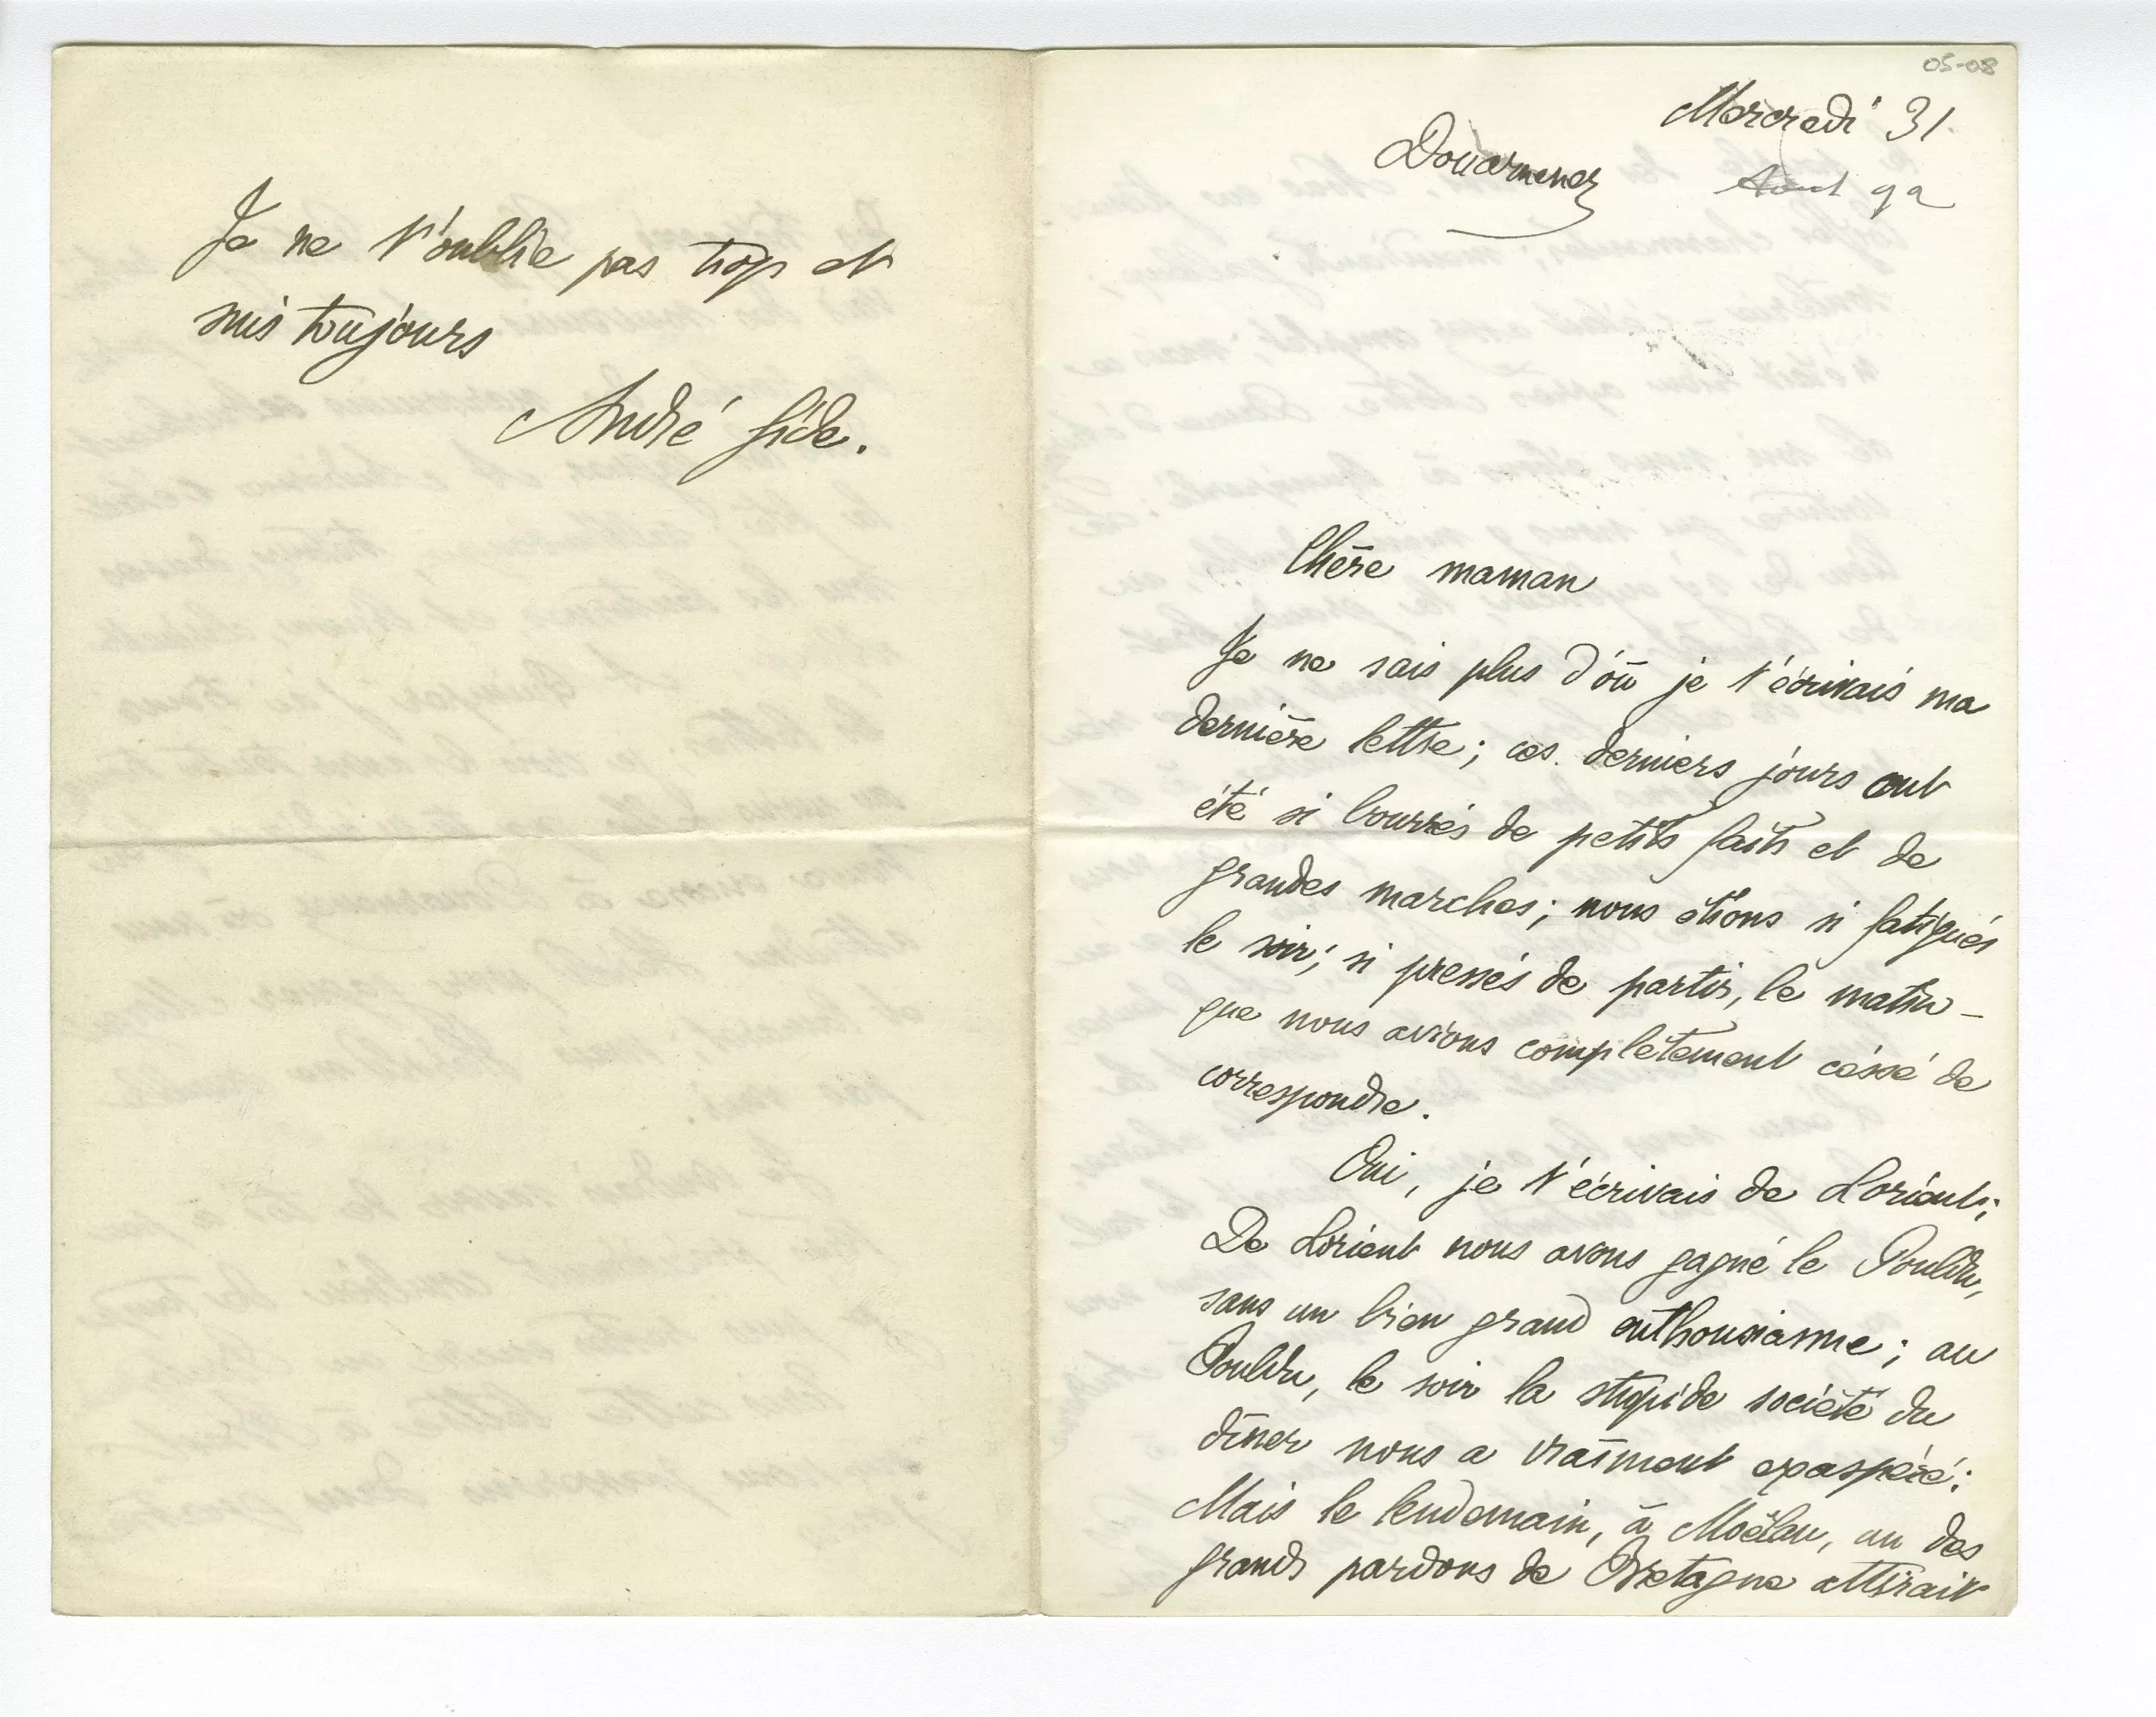 05-08
Mercredi 31.
Août 92
Douarnenez
Chère maman
Je ne sais plus d'où je t'écrivais ma
dernière lettre ; ces derniers jours ont
été si bourrés de petits faits et de
grandes marches ; nous étions si fatigués
le soir ; si pressés de partir, le matin –
que nous avions complètement céssé de
correspondre.
Oui, je t'écrivais de Lorient ;
De Lorient nous avons gagné le Pouldu,
sans un bien grand enthousiasme ; au
Pouldu, le soir la stupide société du
dîner nous a vraiment exaspéré :
Mais le lendemain, à Moëlan, un des
grands pardons de Bretagne attirait
Je ne t'oublie pas trop et
suis toujours
André Gide.